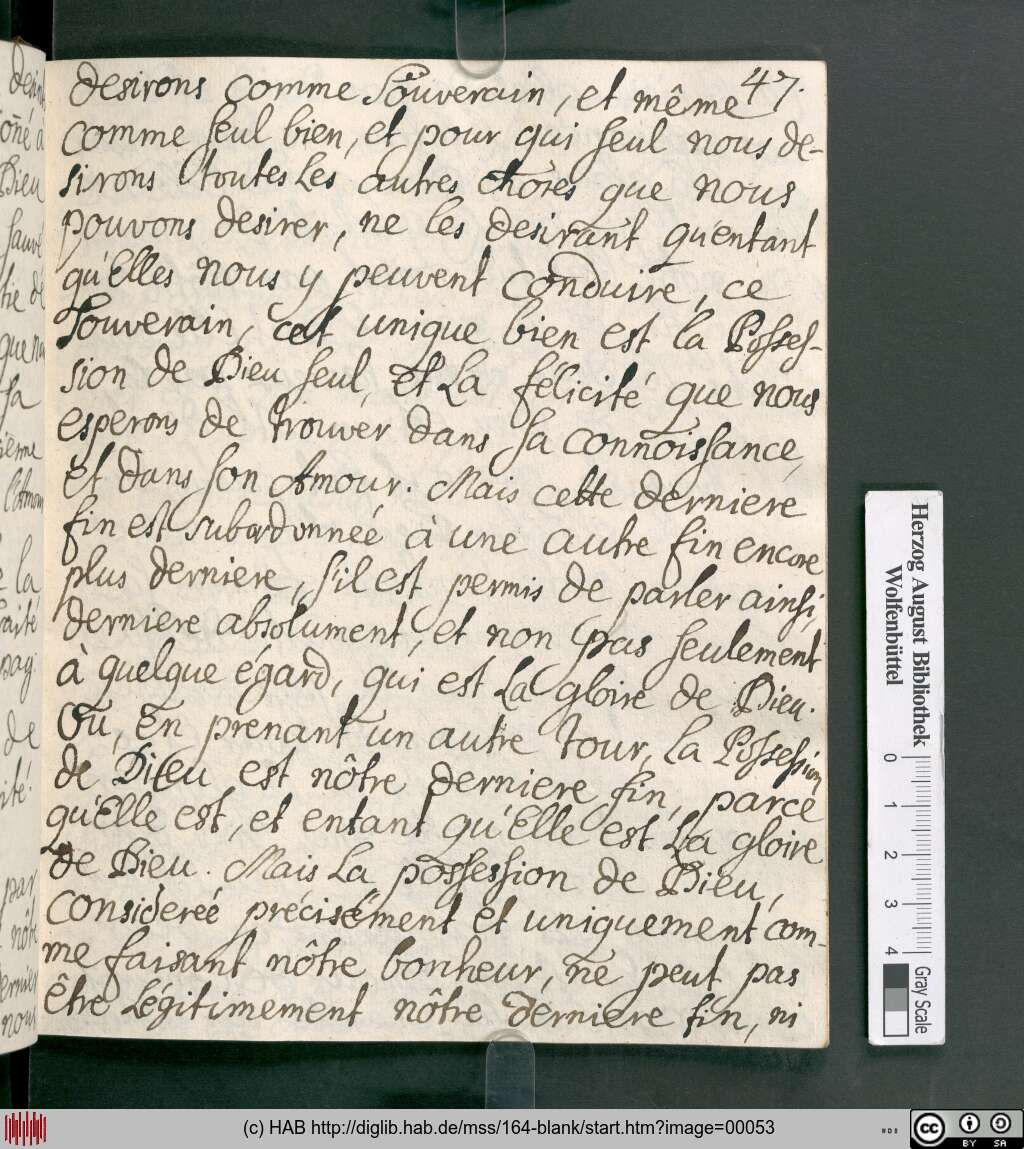 47.
desirons comme Souverain, et même
comme seul bien, et pour qui seul nous de-
sirons toutes les autres choses que nous
pouvons desirer, ne les desirant qu'entant
qu'Elles nous y peuvent conduire, ce
Souverain, cet unique bien est la Posses-
sion de Dieu seul, et La félicité que nous
esperons de trouver dans sa connoissance,
et dans son Amour. Mais cette derniere
fin est subordonneé à une autre fin encore
plus derniere, s'il est permis de parler ainsi,
derniere absolument, et non pas seulement
à quelque égard, qui est La gloire de Dieu.
Ou, en prenant un autre tour, la Possession
de Dieu est nôtre derniere fin, parce
qu'Elle est, et entant qu'Elle est La gloire
de Dieu. Mais La possession de Dieu,
consIdereé précisément et uniquement com-
me faisant nôtre bonheur, ne peut pas
être Légitimement nôtre derniere fin, ni
Herzog August Bibliothek
Wolfenbüttel
0 1 2 3 4
Gray Scale
(c) HAB http://diglib.hab.de/mss/164-blank/start.htm?image=00053
cc BY SA